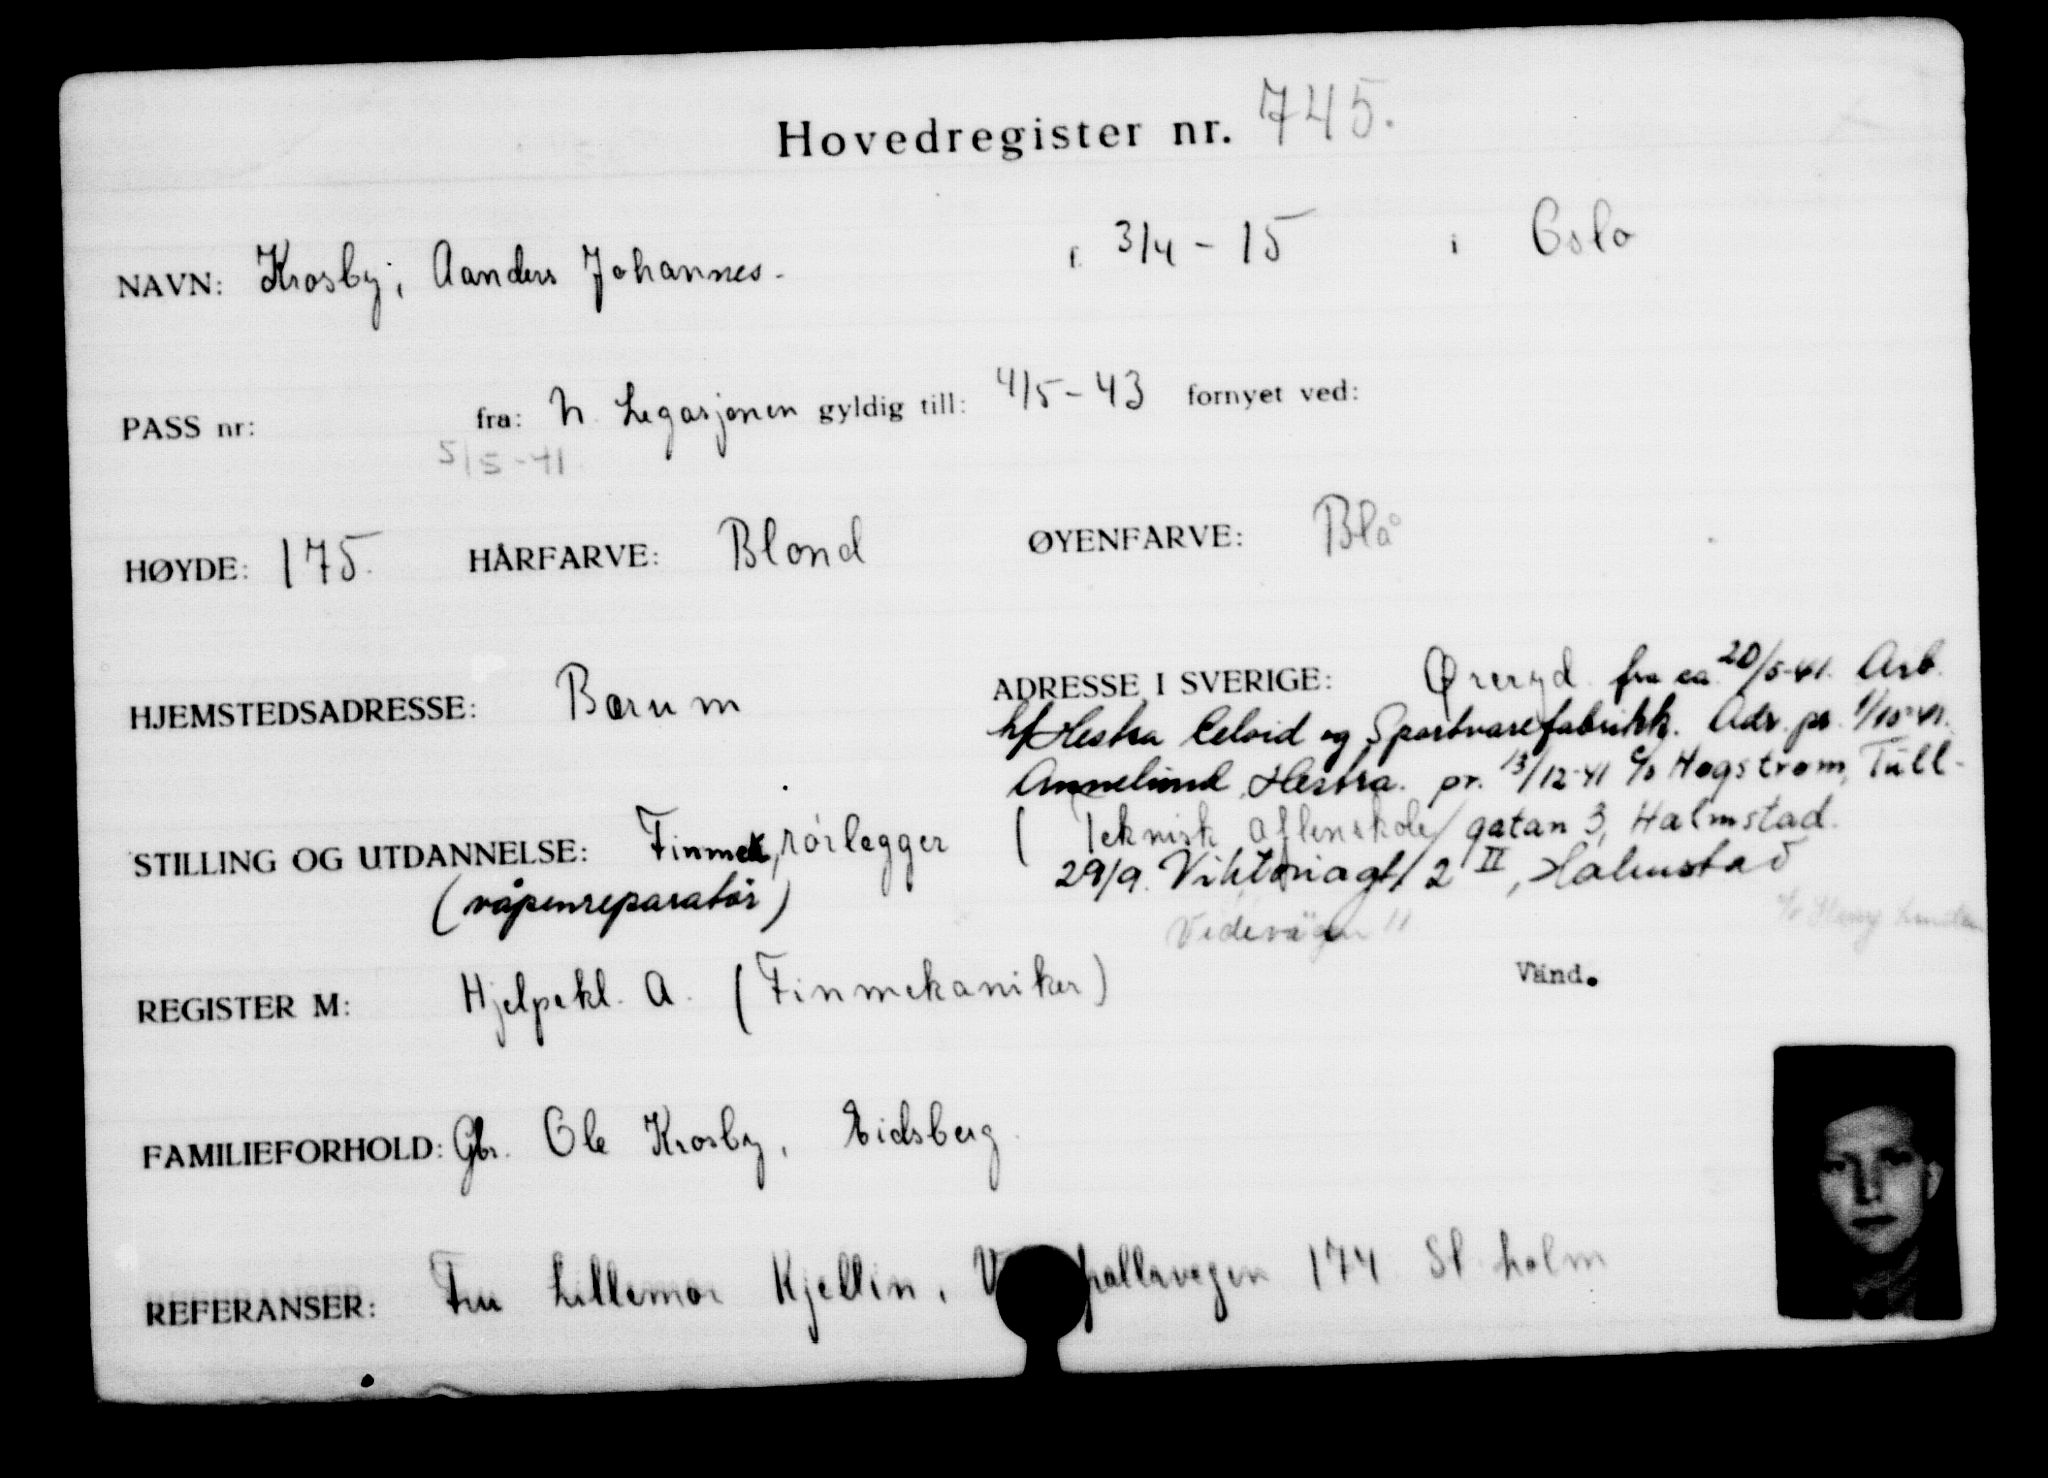 Hovedregister nr. 745.
NAVN: Krosby, Aanders Johannes. f. 3/4 - 15 i Oslo
PASS nr: fra: N. Legasjonen gyldig till: 4/5-43 fornyet ved:
5/5-41
HØYDE: 175. HÅRFARVE: Blond ØYENFARVE: Blå
HJEMSTEDSADRESSE: Bærum ADRESSE I SVERIGE: Øreryd fra ca. 20/5-41. Arb.
h/ Hestra Celoid og Sportvarefabrikk. Adr. pr. 1/10-41.
Annelund, Hestra. pr. 13/12-41 c/o Hogstrom, Tull-
STILLING OG UTDANNELSE: Finmek, rörlegger ( Teknisk aftenskole/ gatan 3, Halmstad.
(våpenreparatör) 29/9. Viktoriagt. 2 II, Halmstad
Videvägen 11 c/o
REGISTER M: Hjelpekl. A. (Finmekaniker) Vänd.
FAMILIEFORHOLD: Gbr. Ole Krosby, Eidsberg.
REFERANSER: Fru Lillemor Kjellin, 174 St.holm